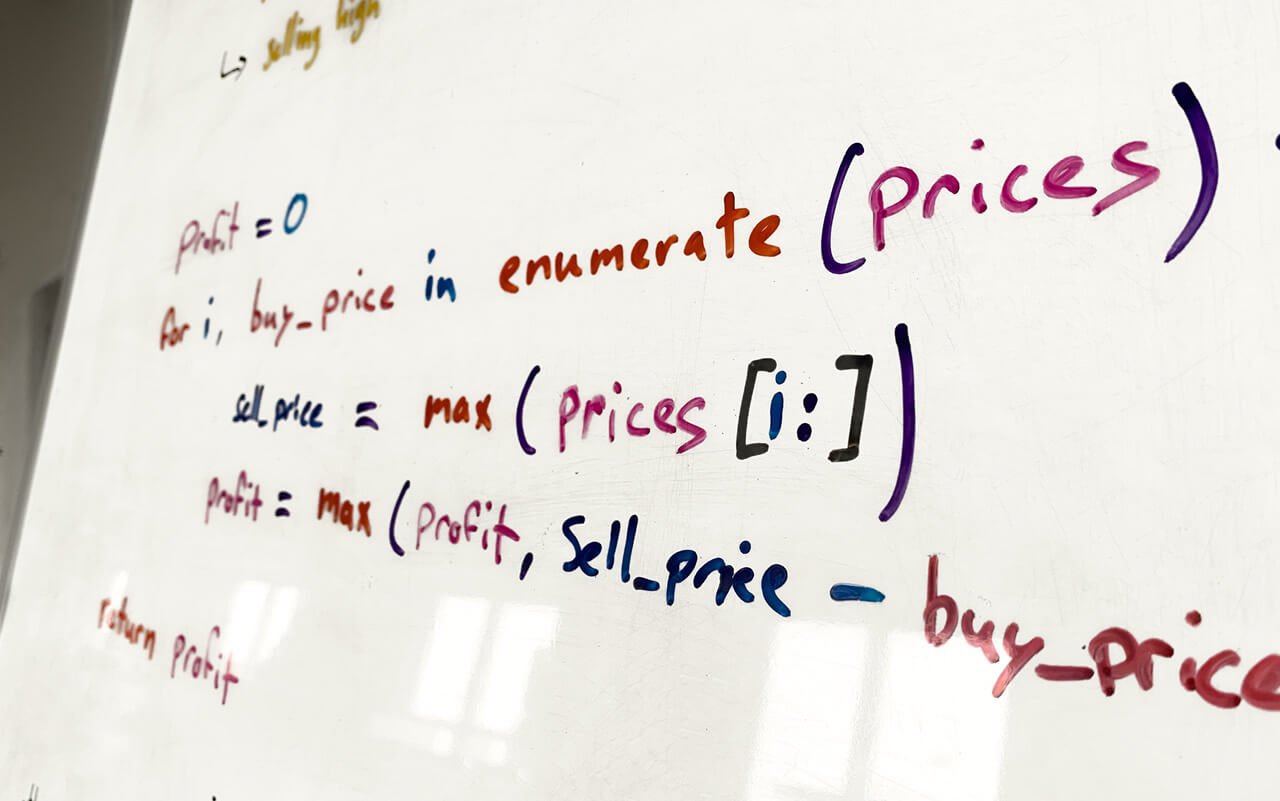 ↳ selling high
profit = 0
for i, buy_price in enumerate (prices)
sell_price = max (prices [i:])
profit = max (profit, Sell_price - buy_price
return profit